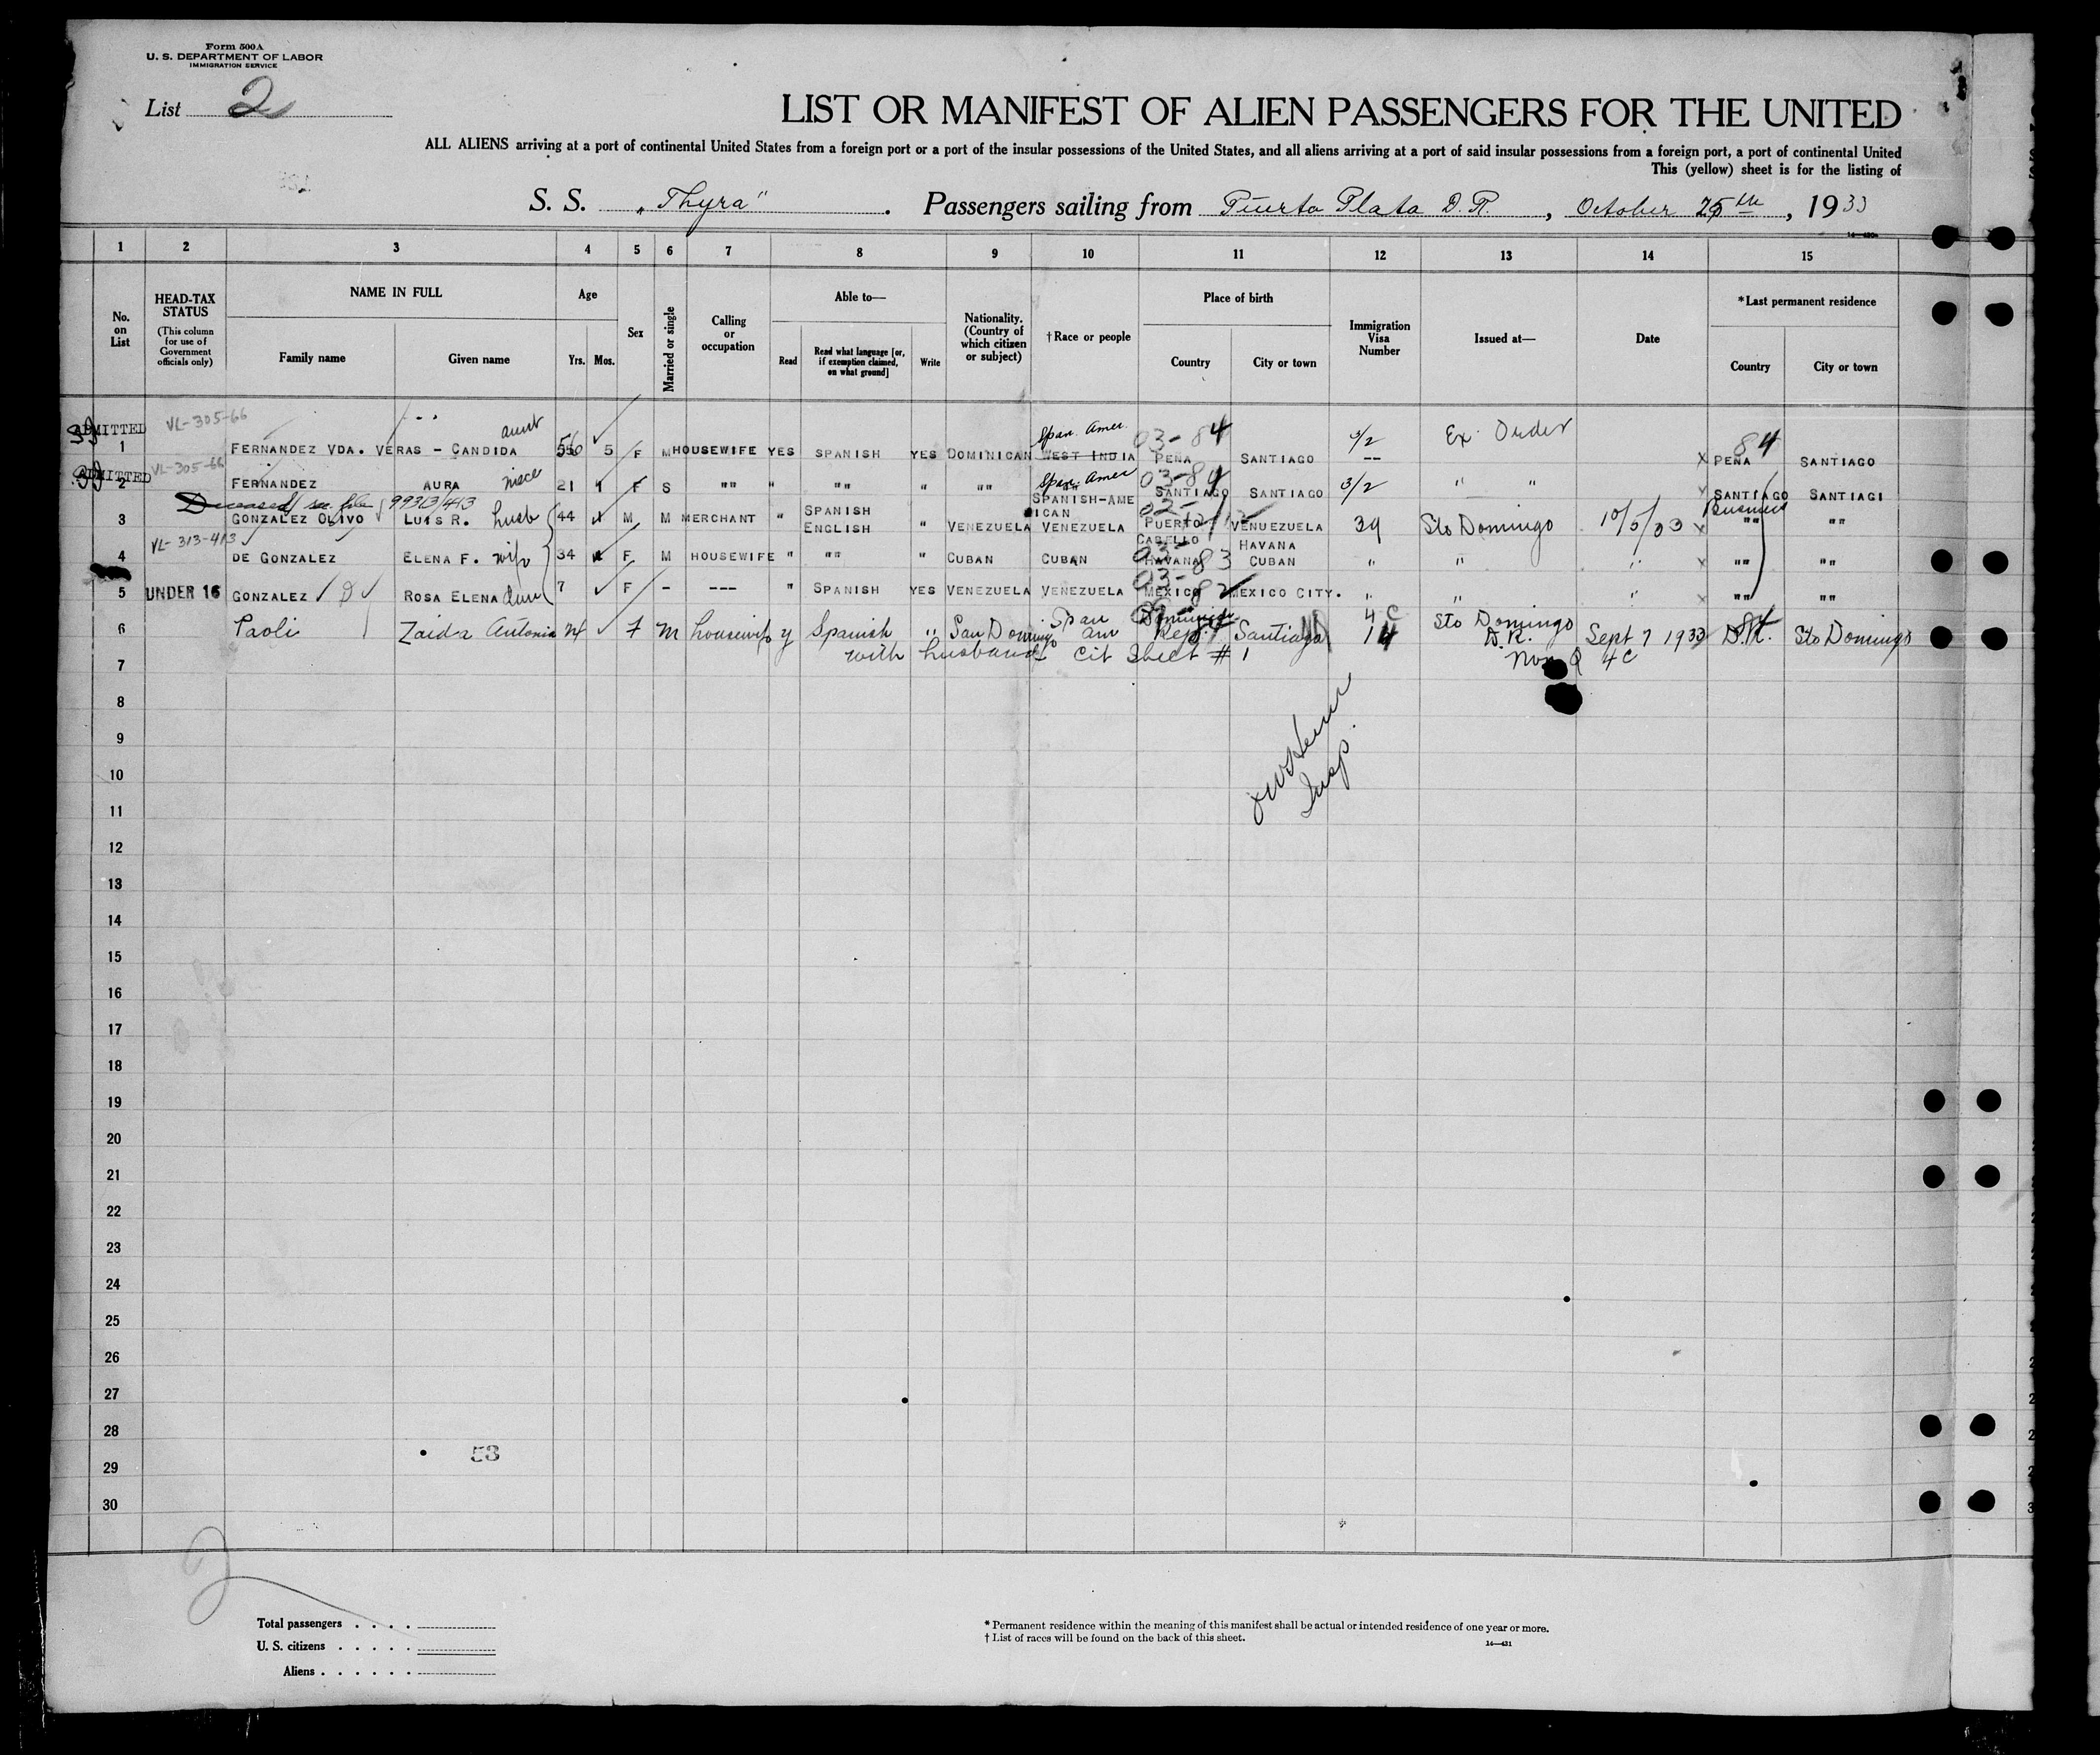 Form 500A
U. S. DEPARTMENT OF LABOR
IMMIGRATION SERVICE
List 2
LIST OR MANIFEST OF ALIEN PASSENGERS FOR THE UNITED
ALL ALIENS arriving at a port of continental United States from a foreign port or a port of the insular possessions of the United States, and all aliens arriving at a port of said insular possessions from a foreign port, a port of continental United
This (yellow) sheet is for the listing of
S. S. "Thyra" . Passengers sailing from Puerto Plata D.R. , October 25th , 1933
1 2 3 4 5 6 7 8 9 10 11 12 13 14 15
No. on List
HEAD-TAX STATUS (This column for use of Government officials only)
NAME IN FULL
Family name Given name
Age
Yrs. Mos.
Sex
Married or single
Calling or occupation
Able to—
Read Read what language [or, if exemption claimed, on what ground] Write
Nationality. (Country of which citizen or subject)
†Race or people
Place of birth
Country City or town
Immigration Visa Number
Issued at—
Date
*Last permanent residence
Country City or town
VL-305-66 aunt Span. Amer. 03-84 3/2 Ex. Order 84
ADMITTED
1 FERNANDEZ VDA. VERAS - CANDIDA 56 5 F M HOUSEWIFE YES SPANISH YES DOMINICAN WEST INDIA PENA SANTIAGO -- X PENA SANTIAGO
VL-305-66 Span. Amer 03-84
ADMITTED
2 FERNANDEZ AURA niece 21 1 F S "" " "" " "" SANTIAGO SANTIAGO 3/2 " " SANTIAGO SANTIAGI
Deceased see file 99313/413 SPANISH SPANISH-AME ICAN Business
3 GONZALEZ OLIVO LUIS R. husb 44 M M MERCHANT " ENGLISH " VENEZUELA VENEZUELA PUERTO CABELLO VENUEZUELA 39 Sto Domingo 10/5/33 X "" ""
VL-313-413
4 DE GONZALEZ ELENA F. wife 34 F M HOUSEWIFE " "" " CUBAN CUBAN HAVANA HAVANA CUBAN " " " X "" ""
03-83
5 UNDER 16 GONZALEZ D ROSA ELENA 7 F - --- " SPANISH YES VENEZUELA VENEZUELA MEXICO MEXICO CITY. " " " X "" ""
6 Paoli Zaida Antonia 24 F M housewife y Spanish " San Domingo Span am Dominican Rep. Santiago 4 C 14 Sto Domingo D.R. Sept 7 1933 D.R. Sto Domingo
7 with husband cit Sheet # 1 Non Q 4C
8
9
Insp.
10
11
12
13
14
15
16
17
18
19
20
21
22
23
24
25
26
27
28
53
29
30
Total passengers . . . .
U. S. citizens . . . . .
Aliens . . . . . .
* Permanent residence within the meaning of this manifest shall be actual or intended residence of one year or more.
† List of races will be found on the back of this sheet.
14—431